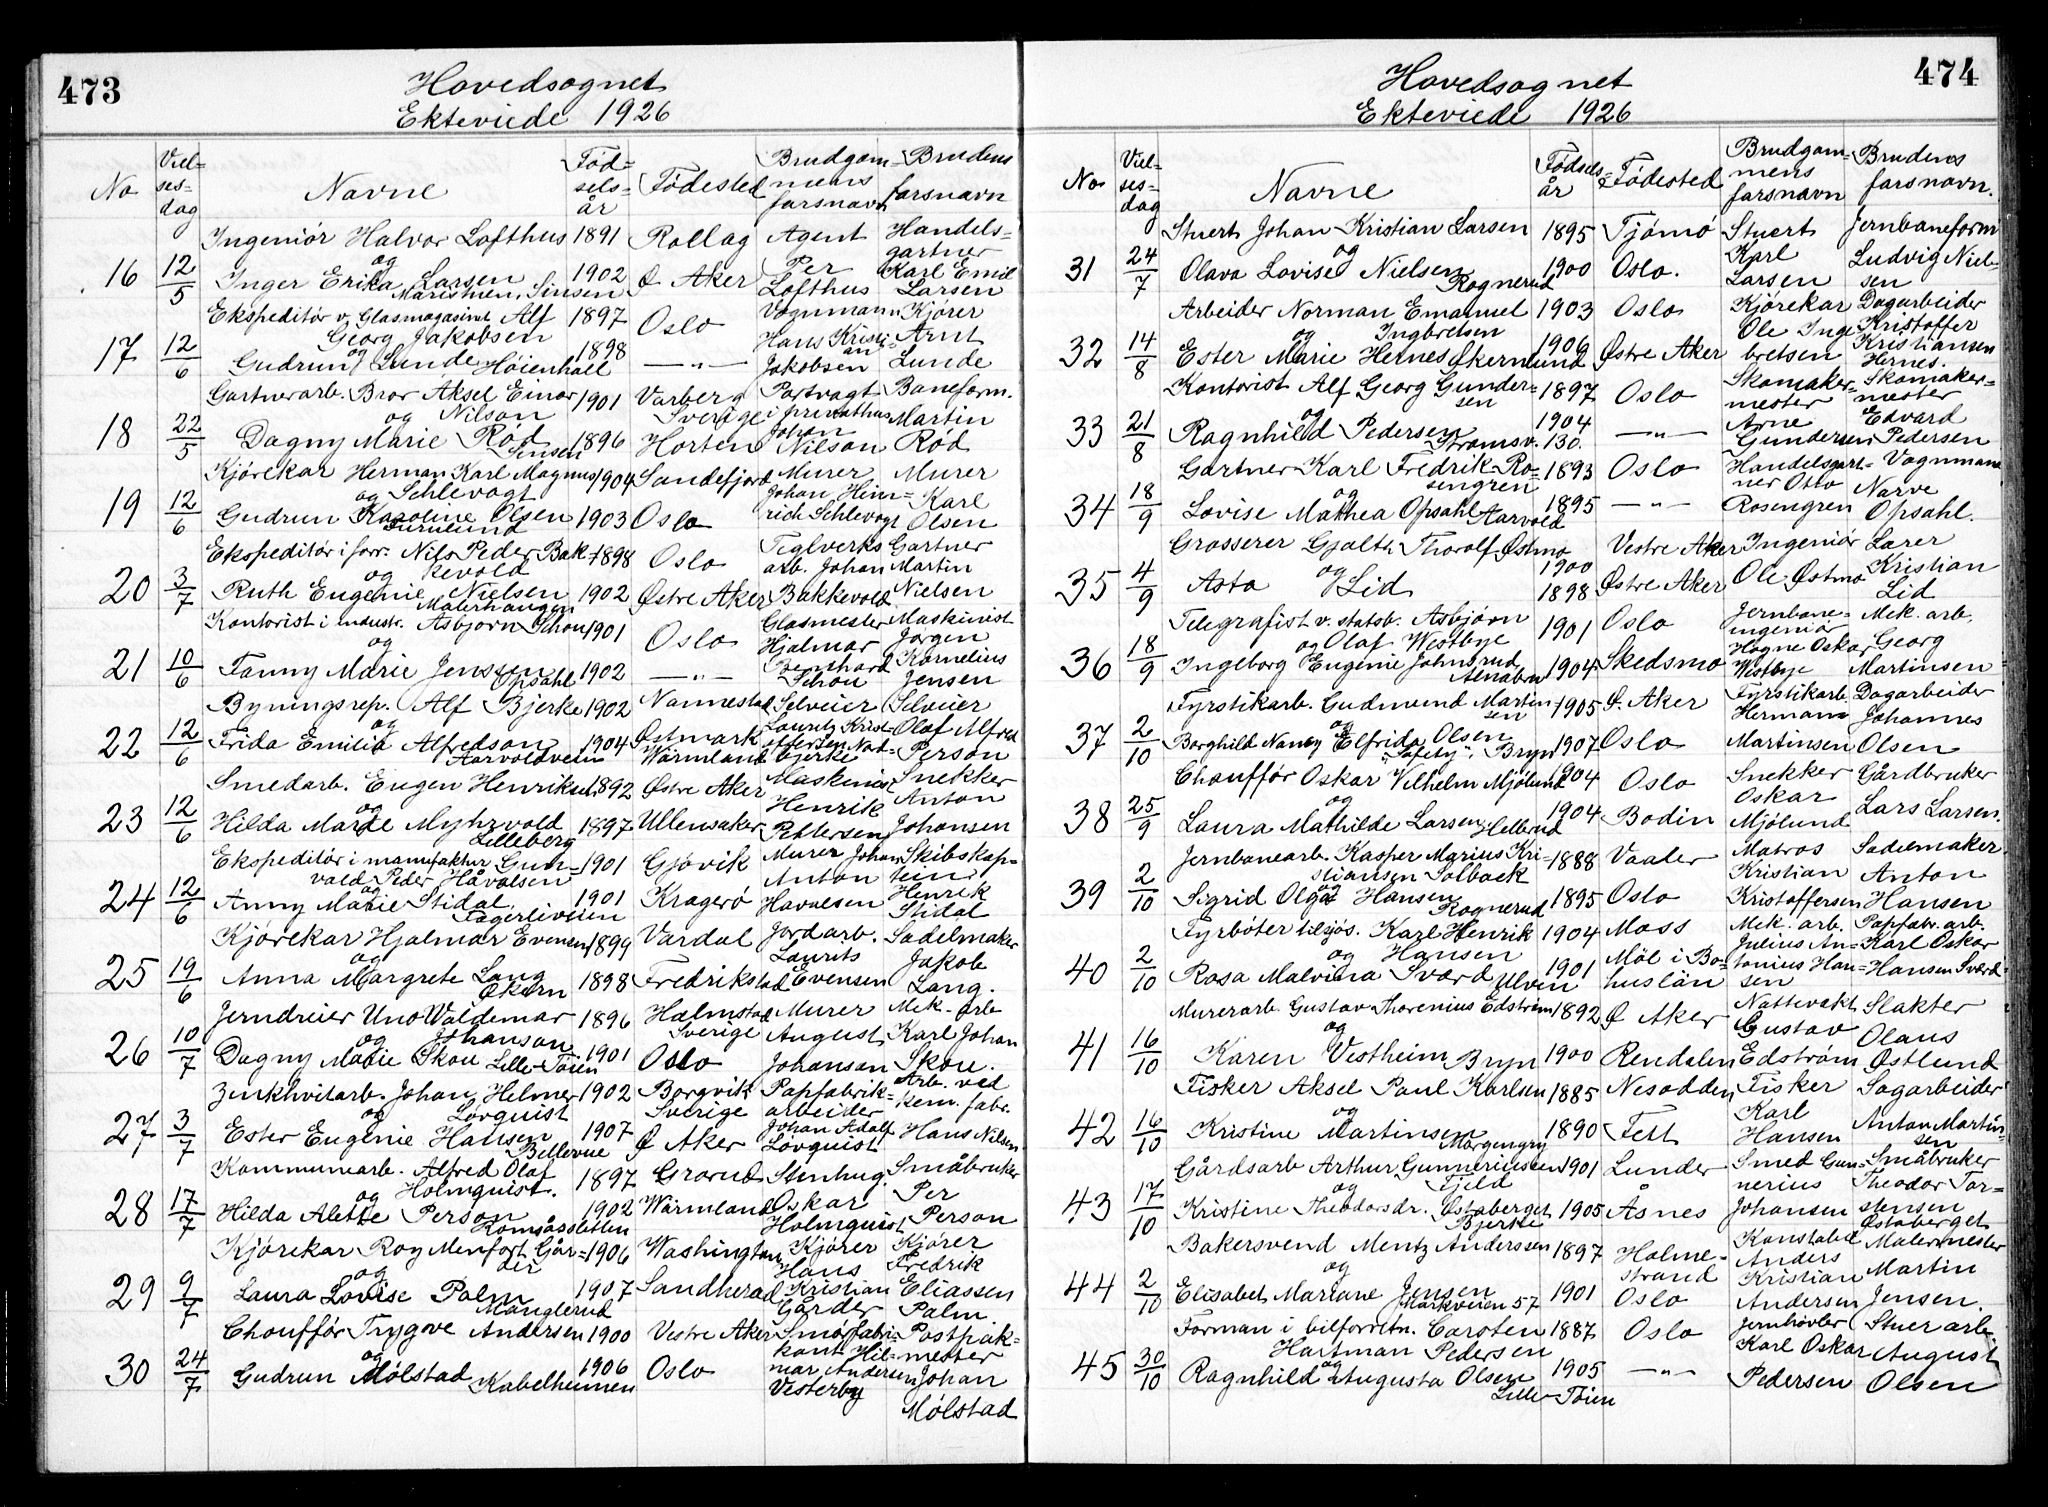 473
Hovedsognet
Ekteviede 1926
No
Viel-
ses-
dag
Navne
Fød-
sels-
år
Fødested
Brudgom-
mens
farsnavn
Brudens
farsnavn
16 12/5
Ingeniør Halvor Lofthus 1891 Rollag Agent Per Lofthus Handels-
gartner Karl Emil Larsen
og
Inger Erika Larsen 1902 Ø Aker
Maristuen, Sinsen
17 12/6
Ekspeditör v. Glasmagasinet Alf 1897 Oslo Vognmann Hans Kristi-
an Jakobsen Kjører Arnt Lunde
Georg Jakobsen
og
Gudrun Lunde Höienhall 1898 —"—
18 22/5
Gartnerarb. Bror Aksel Einar 1901 Varberg Sverige Portvagt i privathus Johan Nilson Baneform. Martin Rød
og Nilson
Dagny Marie Rød 1896 Horten
Sinsen
19 12/6
Kjørekar Herman Karl Magnus 1904 Sandefjord Murer Johan Hein-
rich Schlevogt Murer Karl Olsen
og Schlevogt
Gudrun Karoline Olsen 1903 Oslo
Furulund
20 3/7
Ekspeditör i forr. Nils Peder Bak- 1898 Oslo Teglverks
arb. Johan Bakkevold Gartner Martin Nielsen
og kevold
Ruth Eugenie Nielsen 1902 Østre Aker
Malerhaugen
21 10/6
Kontorist i industr. Asbjørn Schou 1901 Oslo Glasmester Hjalmar Bernhard Schou Maskinist Jørgen Kornelius Jensen
og
Fanny Marie Jenssen 1902 —"—
Opsahl
22 12/6
Bygningsrep. Alf Bjerke 1902 Nannestad Selveier Lauritz Krist-
offersen Nat-
bjerke Selveier Olaf Alfred Person
og
Frida Emilia Alfredson 1904 Østmark Wärmland
Aarvoldveien
23 12/6
Smedarb. Eugen Henriksen 1892 Østre Aker Maskinist Henrik Pettersen Snekker Anton Johansen
og
Hilda Marie Myhrvold 1897 Ullensaker
Lilleberg
24 12/6
Ekspeditör i manufaktur Gun- 1901 Gjøvik Murer Johan Anton Havalsen Skibskap-
tein Henrik Stidal
vald Peder Håvalsen
og
Anny Marie Stidal 1901 Kragerø
Fagerliveien
25 19/6
Kjørekar Hjalmar Evensen 1899 Vardal Jordarb. Laurits Evensen Sadelmaker Jakob Lang.
og
Anna Margrete Lang 1898 Fredrikstad
Økern
26 10/7
Jerndreier Uno Waldemar 1896 Halmstad Sverige Murer August Johanson Mek. arb Karl Johan Skou.
og Johanson
Dagny Marie Skou Lille Töien 1901 Oslo
27 3/7
Zinkhvitarb. Johan Helmer 1902 Borgvik Sverige Papfabrik-
arbeider Johan Adolf Lövquist Arb. ved kem. fabr. Hans Nilsen
og Lövquist
Ester Eugenie Hansen 1907 Ø Aker
Bellevue
28 17/7
Kommunearb. Alfred Olaf 1897 Grorud Stenhug. Oskar Holmquist Småbruker Per Person
og Holmquist.
Hilda Alette Person 1902 Wärmland
Romsåssletten
29 9/7
Kjørekar Roy Menfort Går- 1906 Washington Kjører Hans Kristian Gårder Kjører Fredrik Eliassen Palm
og der
Laura Lovise Palm 1907 Sandherad
Manglerud
30 24/7
Chauffør Trygve Andersen 1900 Vestre Aker Smørfabri-
kant Hil-
mar Andersen Vesterby Postpak-
mester Johan Mølstad
og
Gudrun Mølstad Kabelheimen 1906 Oslo
474
Hovedsognet
Ekteviede 1926
No
Viel-
ses-
dag
Navne
Fødsels-
år
Fødested
Brudgom-
mens
farsnavn
Brudens
farsnavn.
31 24/7
Stuert Johan Kristian Larsen 1895 Tjömö Stuert Karl Larsen Jernbaneform Ludvig Niel-
sen
og
Olava Lovise Nielsen 1900 Oslo.
Rognerud
32 14/8
Arbeider Norman Emanuel 1903 Oslo Kjørekar Ole Inge-
bretsen Dagarbeider Kristoffer Kristiansen Hernes.
og Ingbretsen
Ester Marie Hernes Økernlund 1906 Østre Aker
33 21/8
Kontorist Alf Georg Gunder- 1897 Oslo Skomaker-
mester Arne Gundersen Skomaker-
mester Edvard Pedersen
og sen
Ragnhild Pedersen 1904 —"—
Strømsv. 130.
34 18/9
Gartner Karl Fredrik Ro- 1893 Oslo Handelsgart-
ner Otto Rosengren Vognmann Narve Opsahl.
og sengren
Lovise Mathea Opsahl Aarvold 1895 —"—
35 4/9
Grosserer Gjalth Thorolf Østmo 1900 Vestre Aker Ingeniør Ole Østmo Lærer Kristian Lid
og
Asta Lid 1898 Østre Aker
36 18/9
Telegrafist v. statsb. Asbjørn 1901 Oslo Jernbane-
ingeniör Hagne Oskar Westbye Mek. arb. Georg Martinsen
og Olaf Westbye
Ingeborg Eugenie Johnsrud 1904 Skedsmo
Alnabru
37 2/10
Fyrstikarb. Gudmund Martin- 1905 Ø. Aker Fyrstikarb. Herman Martinsen Dagarbeider Johannes Olsen
og sen
Borghild Nancy Elfrida Olsen 1907 Oslo
"Safety", Bryn
38 25/9
Chauffør Oskar Vilhelm Mjølund 1904 Oslo Snekker Oskar Mjølund Gårdbruker Lars Larsen.
og
Laura Mathilde Larsen Hellerud 1904 Bodin
39 2/10
Jernbanearb. Kasper Marius Kri- 1888 Vaaler Matros Kristian Kristoffersen Sadelmaker Anton Hansen
stiansen Solbaek
og
Sigrid Olga Hansen 1895 Oslo
Rognerud
40 2/10
Fyrbøter tilsjøs. Karl Henrik 1904 Moss Mek. arb. Julius An-
tonius Han-
sen Papfabr. arb. Karl Oskar Hansen Sværd
og Hansen
Rosa Malvina Sværd Ulven 1901 Möl i Bo-
huslän
41 16/10
Murerarb. Gustav Thorenius Edström 1892 Ø Aker Nattevakt Gustav Edstrøm Slakter Olaus Østlund
og
Karen Vestheim Bryn 1900 Rendalen
42 16/10
Fisker Aksel Paul Karlsen 1885 Nesodden Fisker Karl Hansen Sagarbeider Anton Martin-
sen
og
Kristine Martinsen 1890 Fett
Morgengry
43 17/10
Gårdsarb Arthur Gunneriussen 1901 Lunder Smed Gun-
nerius Johansen Småbruker Theodor Tor-
stensen Østaberget
og Fjeld
Kristine Theodorsdr. Østaberget 1905 Åsnes
Bjerke
44 2/10
Bakersvend Mentz Anderssen 1897 Holme-
strand Konstabel Anders Kristian Andersen Malermester Martin Jensen.
og
Elisabet Mariane Jensen 1901 Oslo
Markveien 57
45 30/10
Forman i bilforretn. Carsten 1887 Oslo Jernhøvler Karl Oskar Pedersen Stuerarb. August Olsen
Hartman Pedersen
og
Ragnhild Augusta Olsen 1905 —"—
Lille-Töien